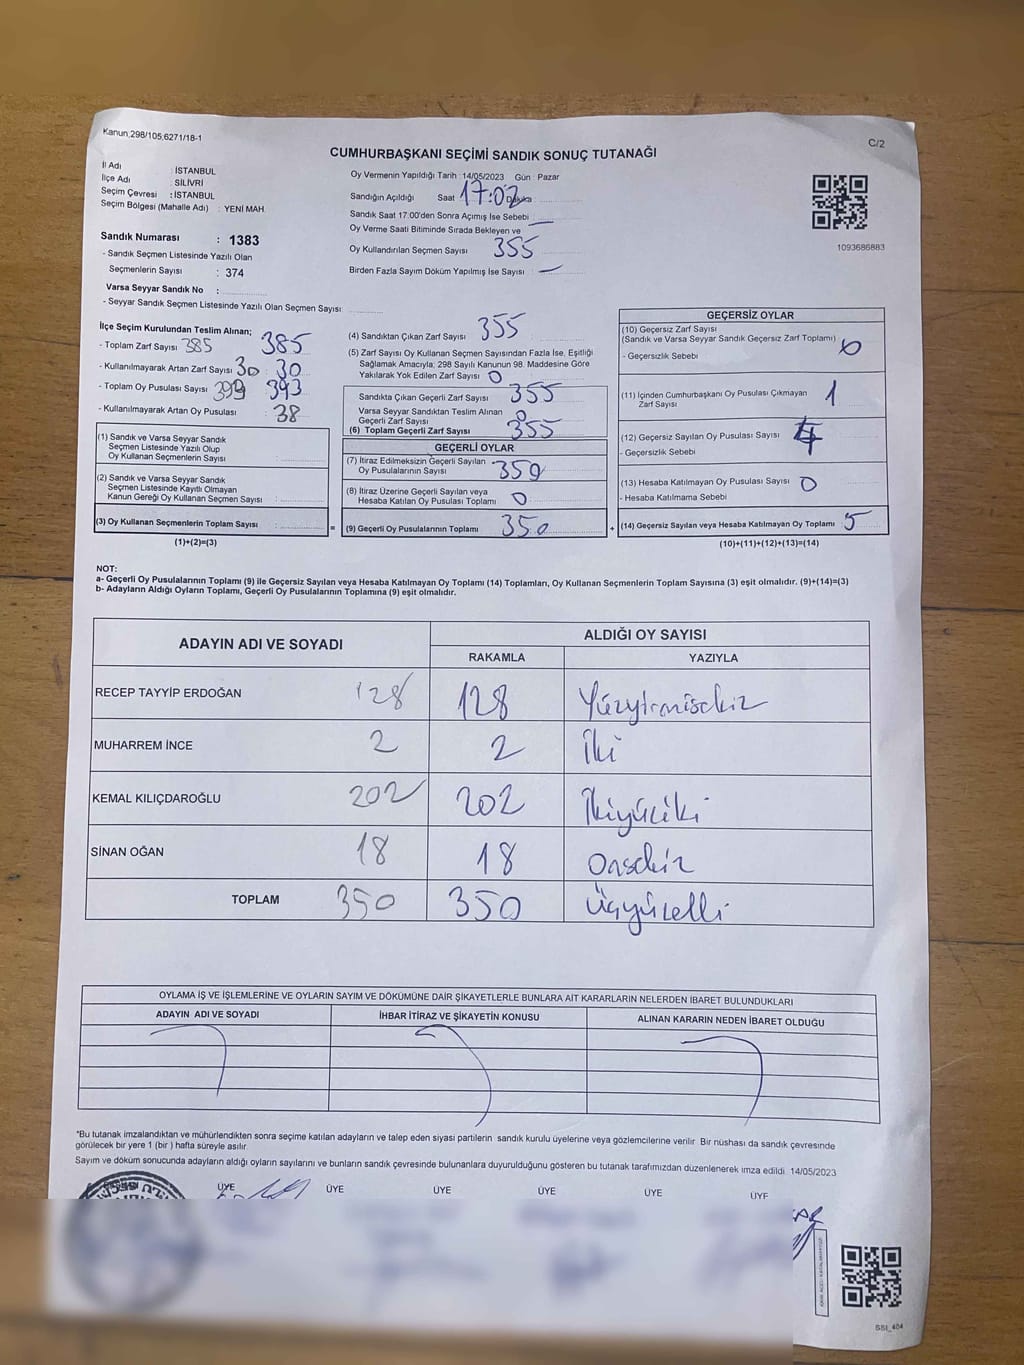 Kanun,298/105,6271/18-1
C/2
CUMHURBAŞKANI SEÇİMİ SANDIK SONUÇ TUTANAĞI
İl Adı : İSTANBUL
İlçe Adı : SİLİVRİ
Seçim Çevresi : İSTANBUL
Seçim Bölgesi (Mahalle Adı) : YENİ MAH
Sandık Numarası : 1383
- Sandık Seçmen Listesinde Yazılı Olan
Seçmenlerin Sayısı : 374
Varsa Seyyar Sandık No :
- Seyyar Sandık Seçmen Listesinde Yazılı Olan Seçmen Sayısı:
Oy Vermenin Yapıldığı Tarih : 14/05/2023 Gün : Pazar
Sandığın Açıldığı Saat 17:02 Dakika
Sandık Saat 17.00'den Sonra Açımış İse Sebebi
Oy Verme Saati Bitiminde Sırada Bekleyen ve
Oy Kullandırılan Seçmen Sayısı 355
Birden Fazla Sayım Döküm Yapılmış İse Sayısı —
1093686883
İlçe Seçim Kurulundan Teslim Alınan;
- Toplam Zarf Sayısı 385 385
- Kullanılmayarak Artan Zarf Sayısı 30 : 30
- Toplam Oy Pusulası Sayısı 393
- Kullanılmayarak Artan Oy Pusulası : 38
(1) Sandık ve Varsa Seyyar Sandık
Seçmen Listesinde Yazılı Olup
Oy Kullanan Seçmenlerin Sayısı :
(2) Sandık ve Varsa Seyyar Sandık
Seçmen Listesinde Kayıtlı Olmayan
Kanun Gereği Oy Kullanan Seçmen Sayısı :
(3) Oy Kullanan Seçmenlerin Toplam Sayısı :
(1)+(2)=(3)
(4) Sandıktan Çıkan Zarf Sayısı 355
(5) Zarf Sayısı Oy Kullanan Seçmen Sayısından Fazla İse, Eşitliği
Sağlamak Amacıyla; 298 Sayılı Kanunun 98. Maddesine Göre
Yakılarak Yok Edilen Zarf Sayısı 0
Sandıkta Çıkan Geçerli Zarf Sayısı 355
Varsa Seyyar Sandıktan Teslim Alınan
Geçerli Zarf Sayısı 0
(6) Toplam Geçerli Zarf Sayısı 355
GEÇERLİ OYLAR
(7) İtiraz Edilmeksizin Geçerli Sayılan
Oy Pusulalarının Sayısı 350
(8) İtiraz Üzerine Geçerli Sayılan veya
Hesaba Katılan Oy Pusulası Toplamı 0
= (9) Geçerli Oy Pusulalarının Toplamı 350 +
GEÇERSİZ OYLAR
(10) Geçersiz Zarf Sayısı
(Sandık ve Varsa Seyyar Sandık Geçersiz Zarf Toplamı) 0
- Geçersizlik Sebebi
(11) İçinden Cumhurbaşkanı Oy Pusulası Çıkmayan
Zarf Sayısı 1
(12) Geçersiz Sayılan Oy Pusulası Sayısı 4
- Geçersizlik Sebebi
(13) Hesaba Katılmayan Oy Pusulası Sayısı 0
- Hesaba Katılmama Sebebi
(14) Geçersiz Sayılan veya Hesaba Katılmayan Oy Toplamı 5
(10)+(11)+(12)+(13)=(14)
NOT:
a- Geçerli Oy Pusulalarının Toplamı (9) ile Geçersiz Sayılan veya Hesaba Katılmayan Oy Toplamı (14) Toplamları, Oy Kullanan Seçmenlerin Toplam Sayısına (3) eşit olmalıdır. (9)+(14)=(3)
b- Adayların Aldığı Oyların Toplamı, Geçerli Oy Pusulalarının Toplamına (9) eşit olmalıdır.
ADAYIN ADI VE SOYADI ALDIĞI OY SAYISI
RAKAMLA YAZIYLA
RECEP TAYYİP ERDOĞAN 128 128 Yüzyirmisekiz
MUHARREM İNCE 2 2 İki
KEMAL KILIÇDAROĞLU 202 202 İkiyüziki
SİNAN OĞAN 18 18 Onsekiz
TOPLAM 350 350 Üçyüzelli
OYLAMA İŞ VE İŞLEMLERİNE VE OYLARIN SAYIM VE DÖKÜMÜNE DAİR ŞİKAYETLERLE BUNLARA AİT KARARLARIN NELERDEN İBARET BULUNDUKLARI
ADAYIN ADI VE SOYADI İHBAR İTİRAZ VE ŞİKAYETİN KONUSU ALINAN KARARIN NEDEN İBARET OLDUĞU
*Bu tutanak imzalandıktan ve mühürlendikten sonra seçime katılan adayların ve talep eden siyasi partilerin sandık kurulu üyelerine veya gözlemcilerine verilir. Bir nüshası da sandık çevresinde
görülecek bir yere 1 (bir ) hafta süreyle asılır.
Sayım ve döküm sonucunda adayların aldığı oyların sayılarını ve bunların sandık çevresinde bulunanlara duyurulduğunu gösteren bu tutanak tarafımızdan düzenlenerek imza edildi. 14/05/2023
ÜYE ÜYE ÜYE ÜYE ÜYE ÜYE
SSI_404